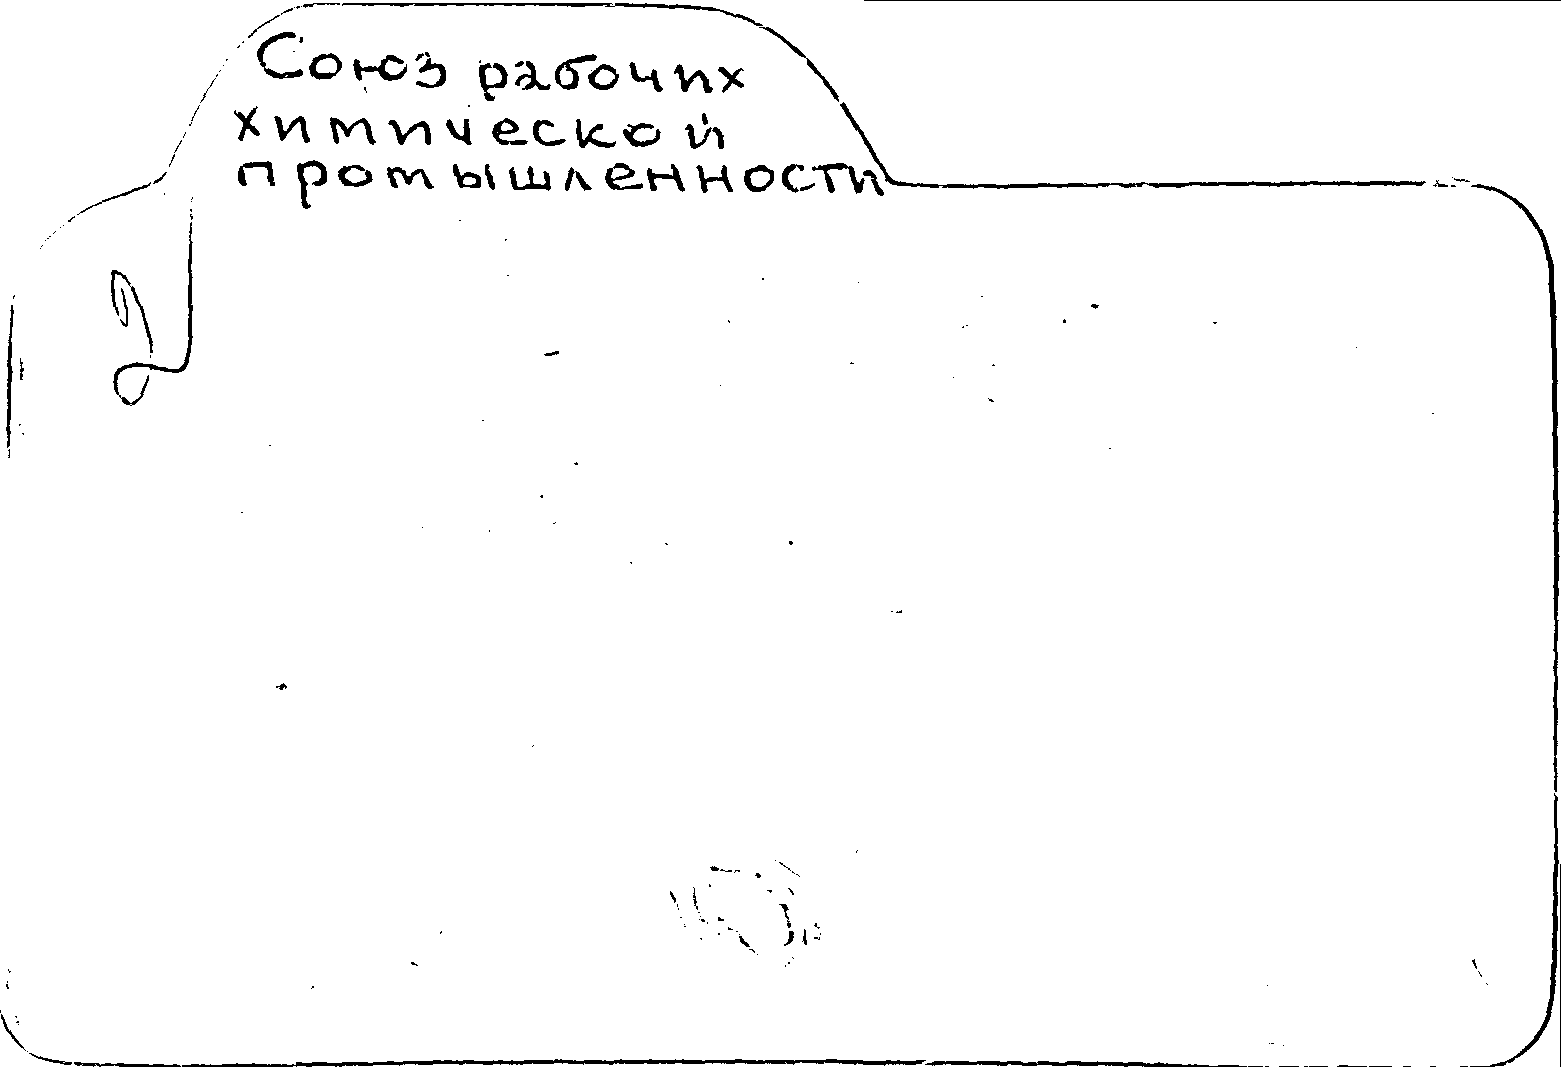 Союз рабочих
химической
промышленности